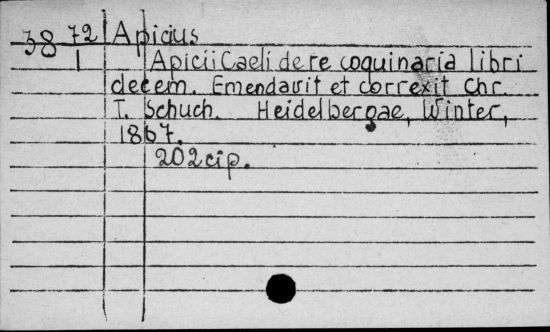 38 72 Apicius
1 Apicii Caeli de re coquinaria libri
decem. Emendavit et correxit Chr.
T. Schuch. Heidelbergae, Winter,
1867.
202 cip.